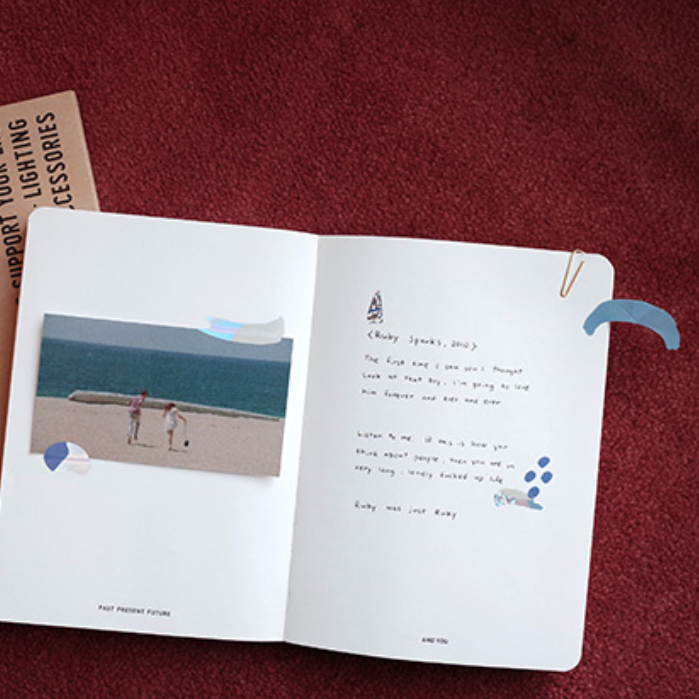 SUPPORT YOUR
LIGHTING
CCESSORIES
(Ruby Sparks, 2012)
The first time I saw you I thought
Look at that boy, I'm going to love
him forever and ever and ever
Listen to me. If this is how you
think about people, then you are in
very long, lonely fucked up life
Ruby was just Ruby
PAST PRESENT FUTURE
AND YOU